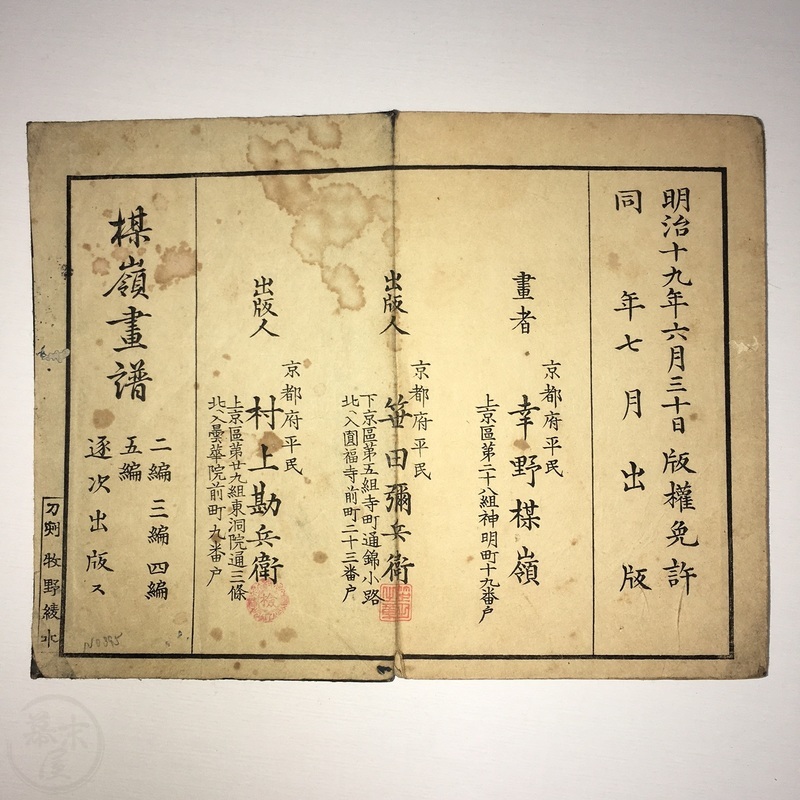 明治十九年六月三十日版權免許
同年七月出版
畫者
京都府平民
幸野楳嶺
上京區第二十八組神明町十九番戸
出版人
京都府平民
笹田彌兵衛
下京區第五組寺町通錦小路
北入圓福寺前町二十三番戸
出版人
京都府平民
村上勘兵衛
上京區第廿九組東洞院通三條
北入曇華院前町九番戸
楳嶺畫譜
二編 三編 四編
五編
逐次出版ス
牧野綾水
幕末屋